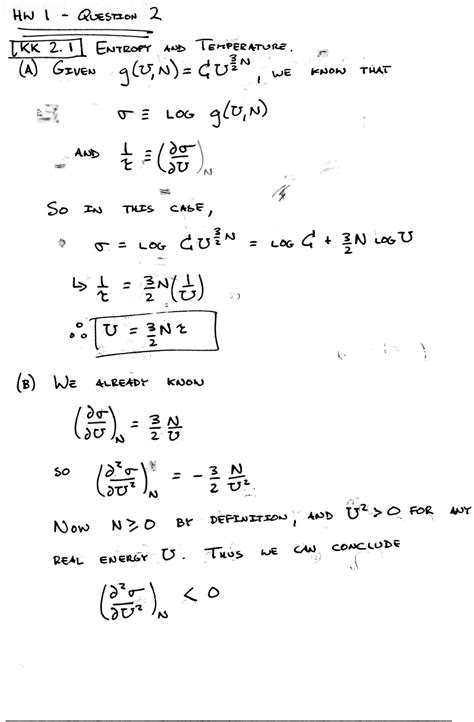 HW 1 - QUESTION 2
KK 2.1 ENTROPY AND TEMPERATURE.
(A) GIVEN g(U,N) = C U^{3/2 N}, WE KNOW THAT
σ ≡ LOG g(U,N)
AND 1/τ ≡ (∂σ/∂U)_N
SO IN THIS CASE,
σ = LOG C U^{3/2 N} = LOG C + 3/2 N LOG U
↳ 1/τ = 3/2 N (1/U)
∴ U = 3/2 N τ
(B) WE ALREADY KNOW
(∂σ/∂U)_N = 3/2 N/U
SO (∂²σ/∂U²)_N = - 3/2 N/U²
NOW N ≥ 0 BY DEFINITION, AND U² > 0 FOR ANY
REAL ENERGY U. THUS WE CAN CONCLUDE
(∂²σ/∂U²)_N < 0